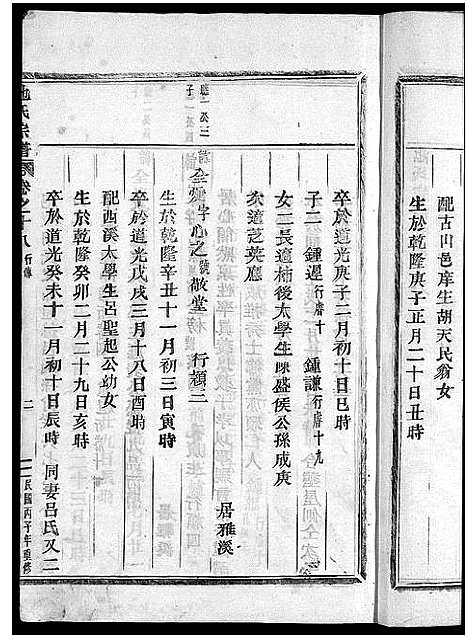 配古山邑庠生胡天民翁女
生於乾隆庚子正月二十日丑時
卒於道光庚子二月初十日巳時
子二 鍾遲行膺十 鍾諫行膺十九
女二長適柿後太學生陳盛侯公孫成庚
次適芝英應
全 字心之號敬堂 行穎三 居雅溪
生於乾隆辛丑十一月初三日寅時
卒於道光戊戌三月十八日酉時
配西溪太學生呂聖起公幼女
生於乾隆癸卯二月二十九日亥時
卒於道光癸未十一月初十日辰時 同妻呂氏又二
施氏宗譜 卷之二十八 行傳 二 民國丙子年重修